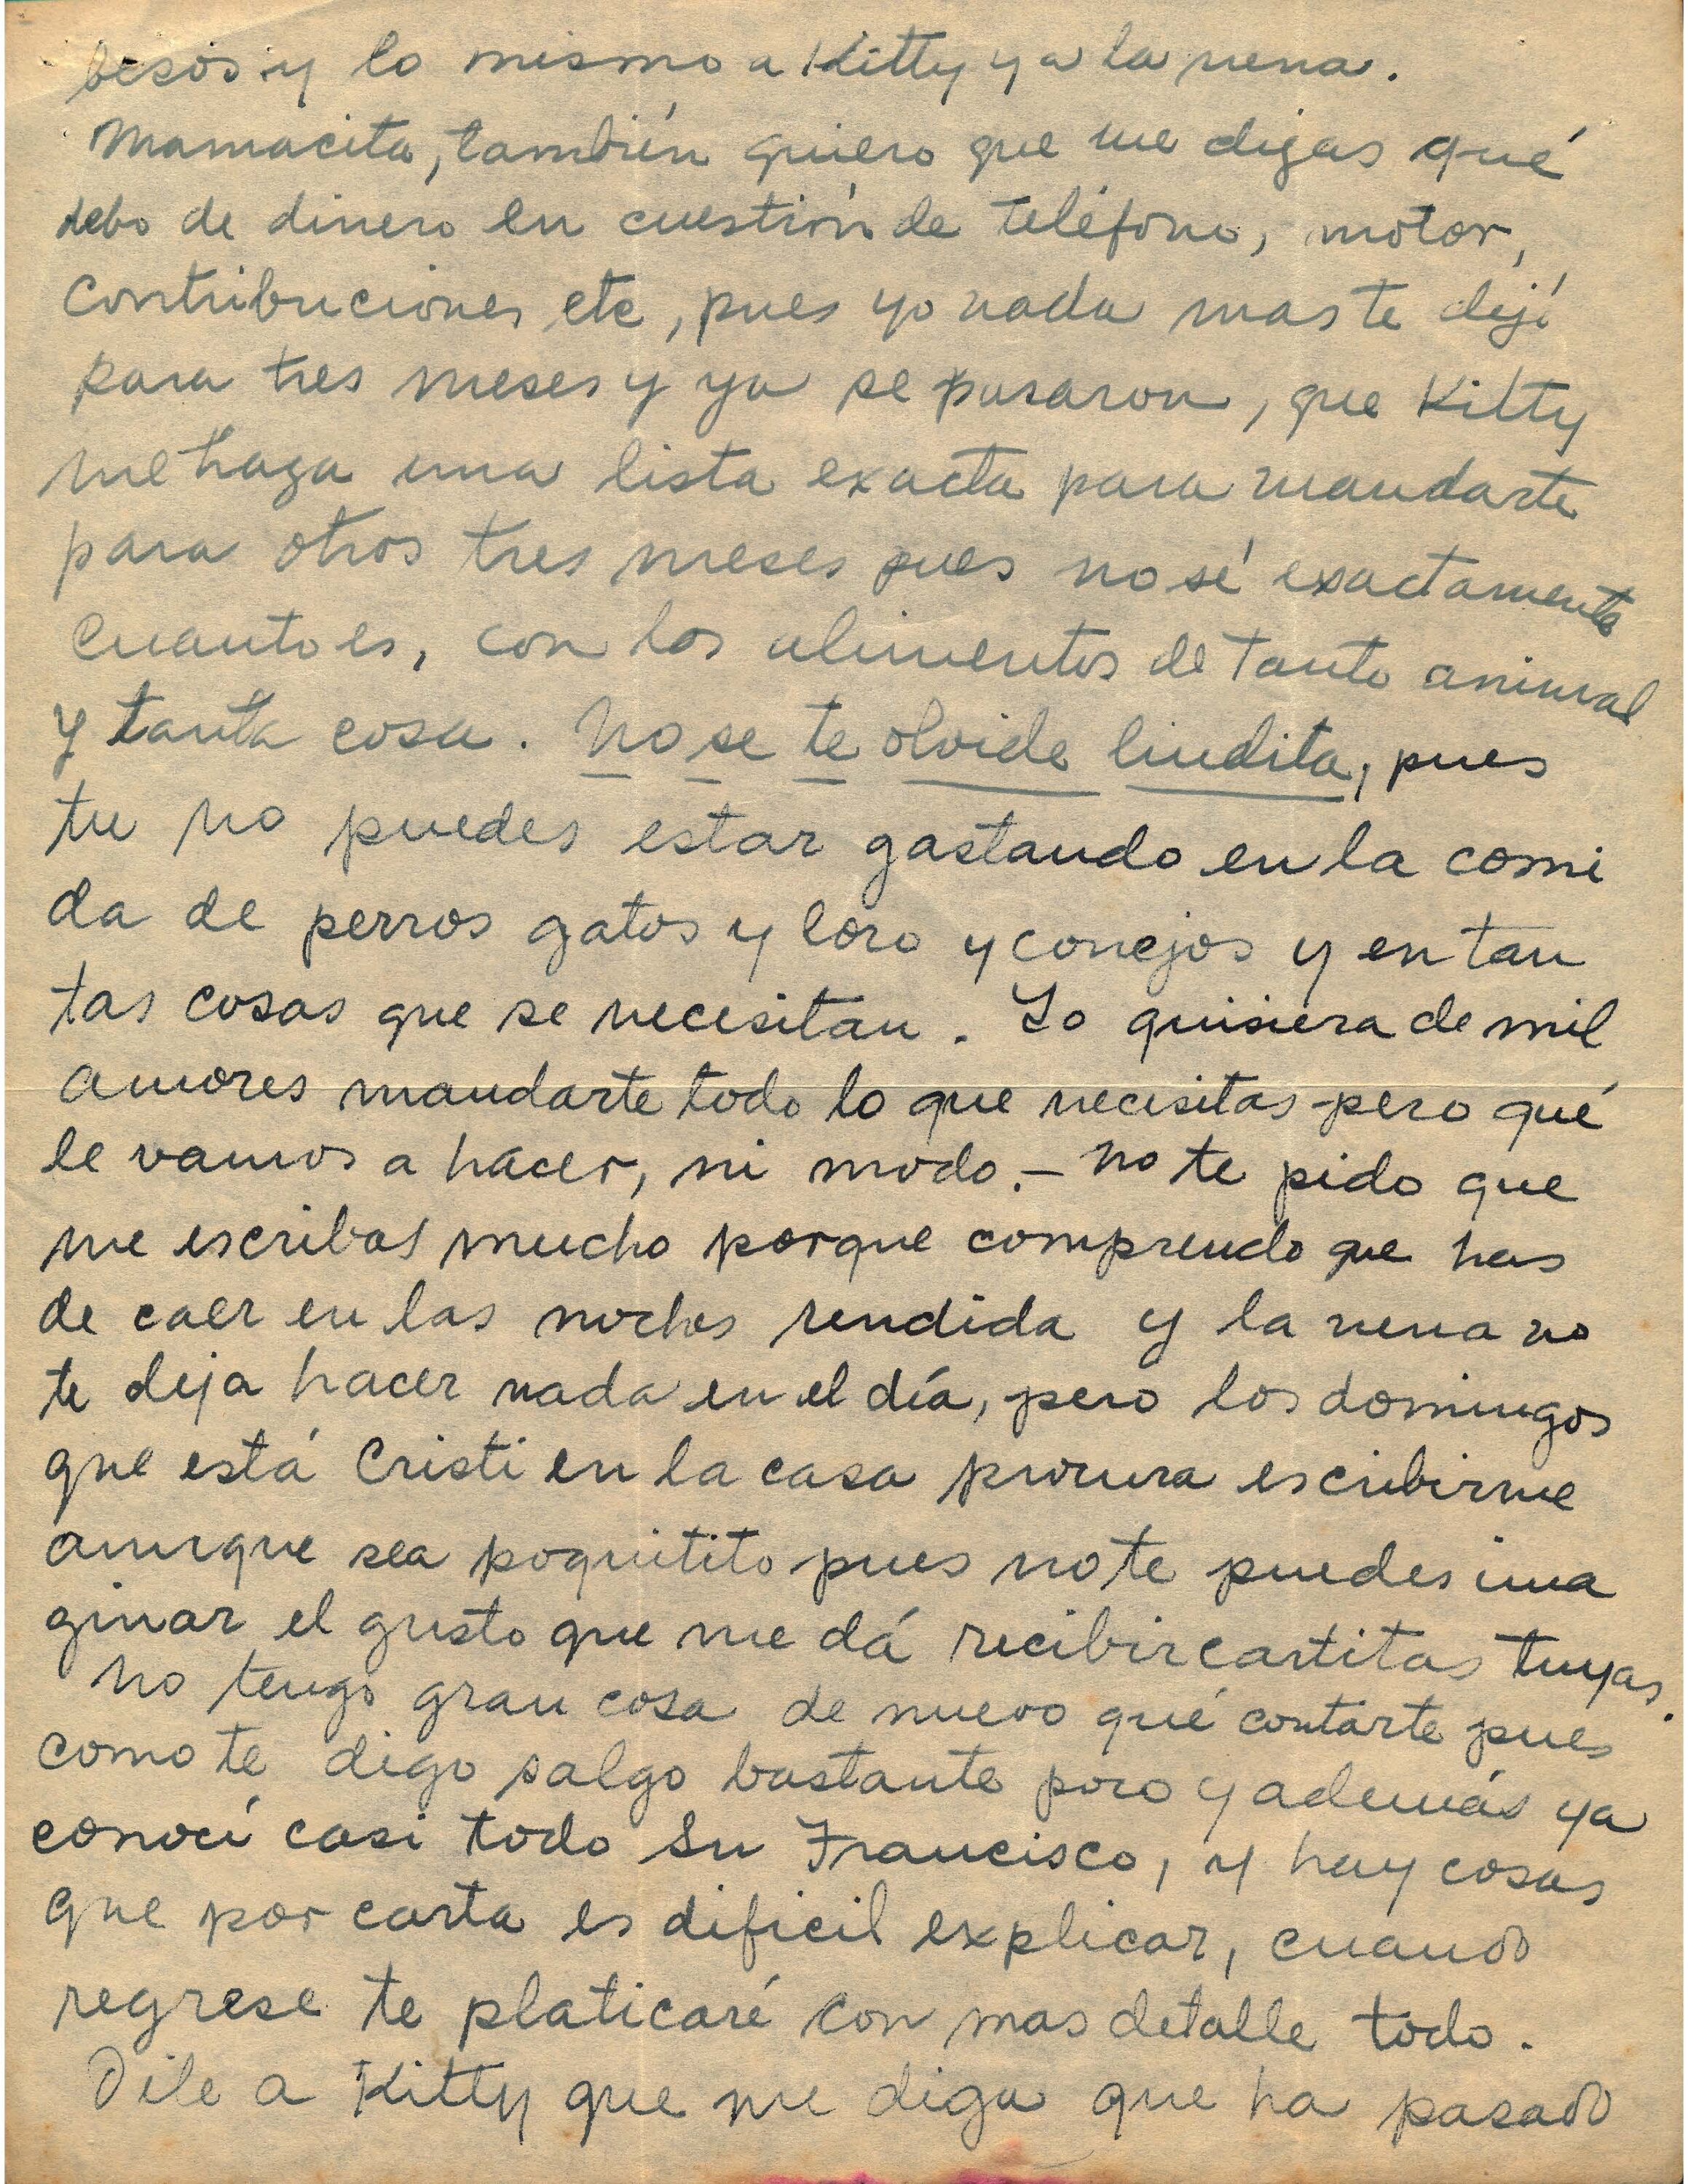 besos y lo mismo a Kitty y a la nena.
Mamacita, también quiero que me digas qué
debo de dinero en cuestión de teléfono, motor,
contribuciones etc, pues yo nada mas te dejé
para tres meses y ya se pasaron, que Kitty
me haga una lista exacta para mandarte
para otros tres meses pues no sé exactamente
cuanto es, con los alimentos de tanto animal
y tanta cosa. No se te olvide lindita, pues
tu no puedes estar gastando en la comi
da de perros gatos y loro y conejos y en tan
tas cosas que se necesitan. Yo quisiera de mil
amores mandarte todo lo que necesitas pero qué
le vamos a hacer, ni modo.- No te pido que
me escribas mucho porque comprendo que has
de caer en las noches rendida y la nena no
te deja hacer nada en el día, pero los domingos
que está Cristi en la casa procura escribirme
aunque sea poquitito pues no te puedes ima
ginar el gusto que me dá recibir cartitas tuyas.
No tengo gran cosa de nuevo qué contarte pues
como te digo salgo bastante poco y además ya
conocí casi todo Sn Francisco, y hay cosas
que por carta es dificil explicar, cuando
regrese te platicaré con mas detalle todo.
Dile a Kitty que me diga que ha pasado